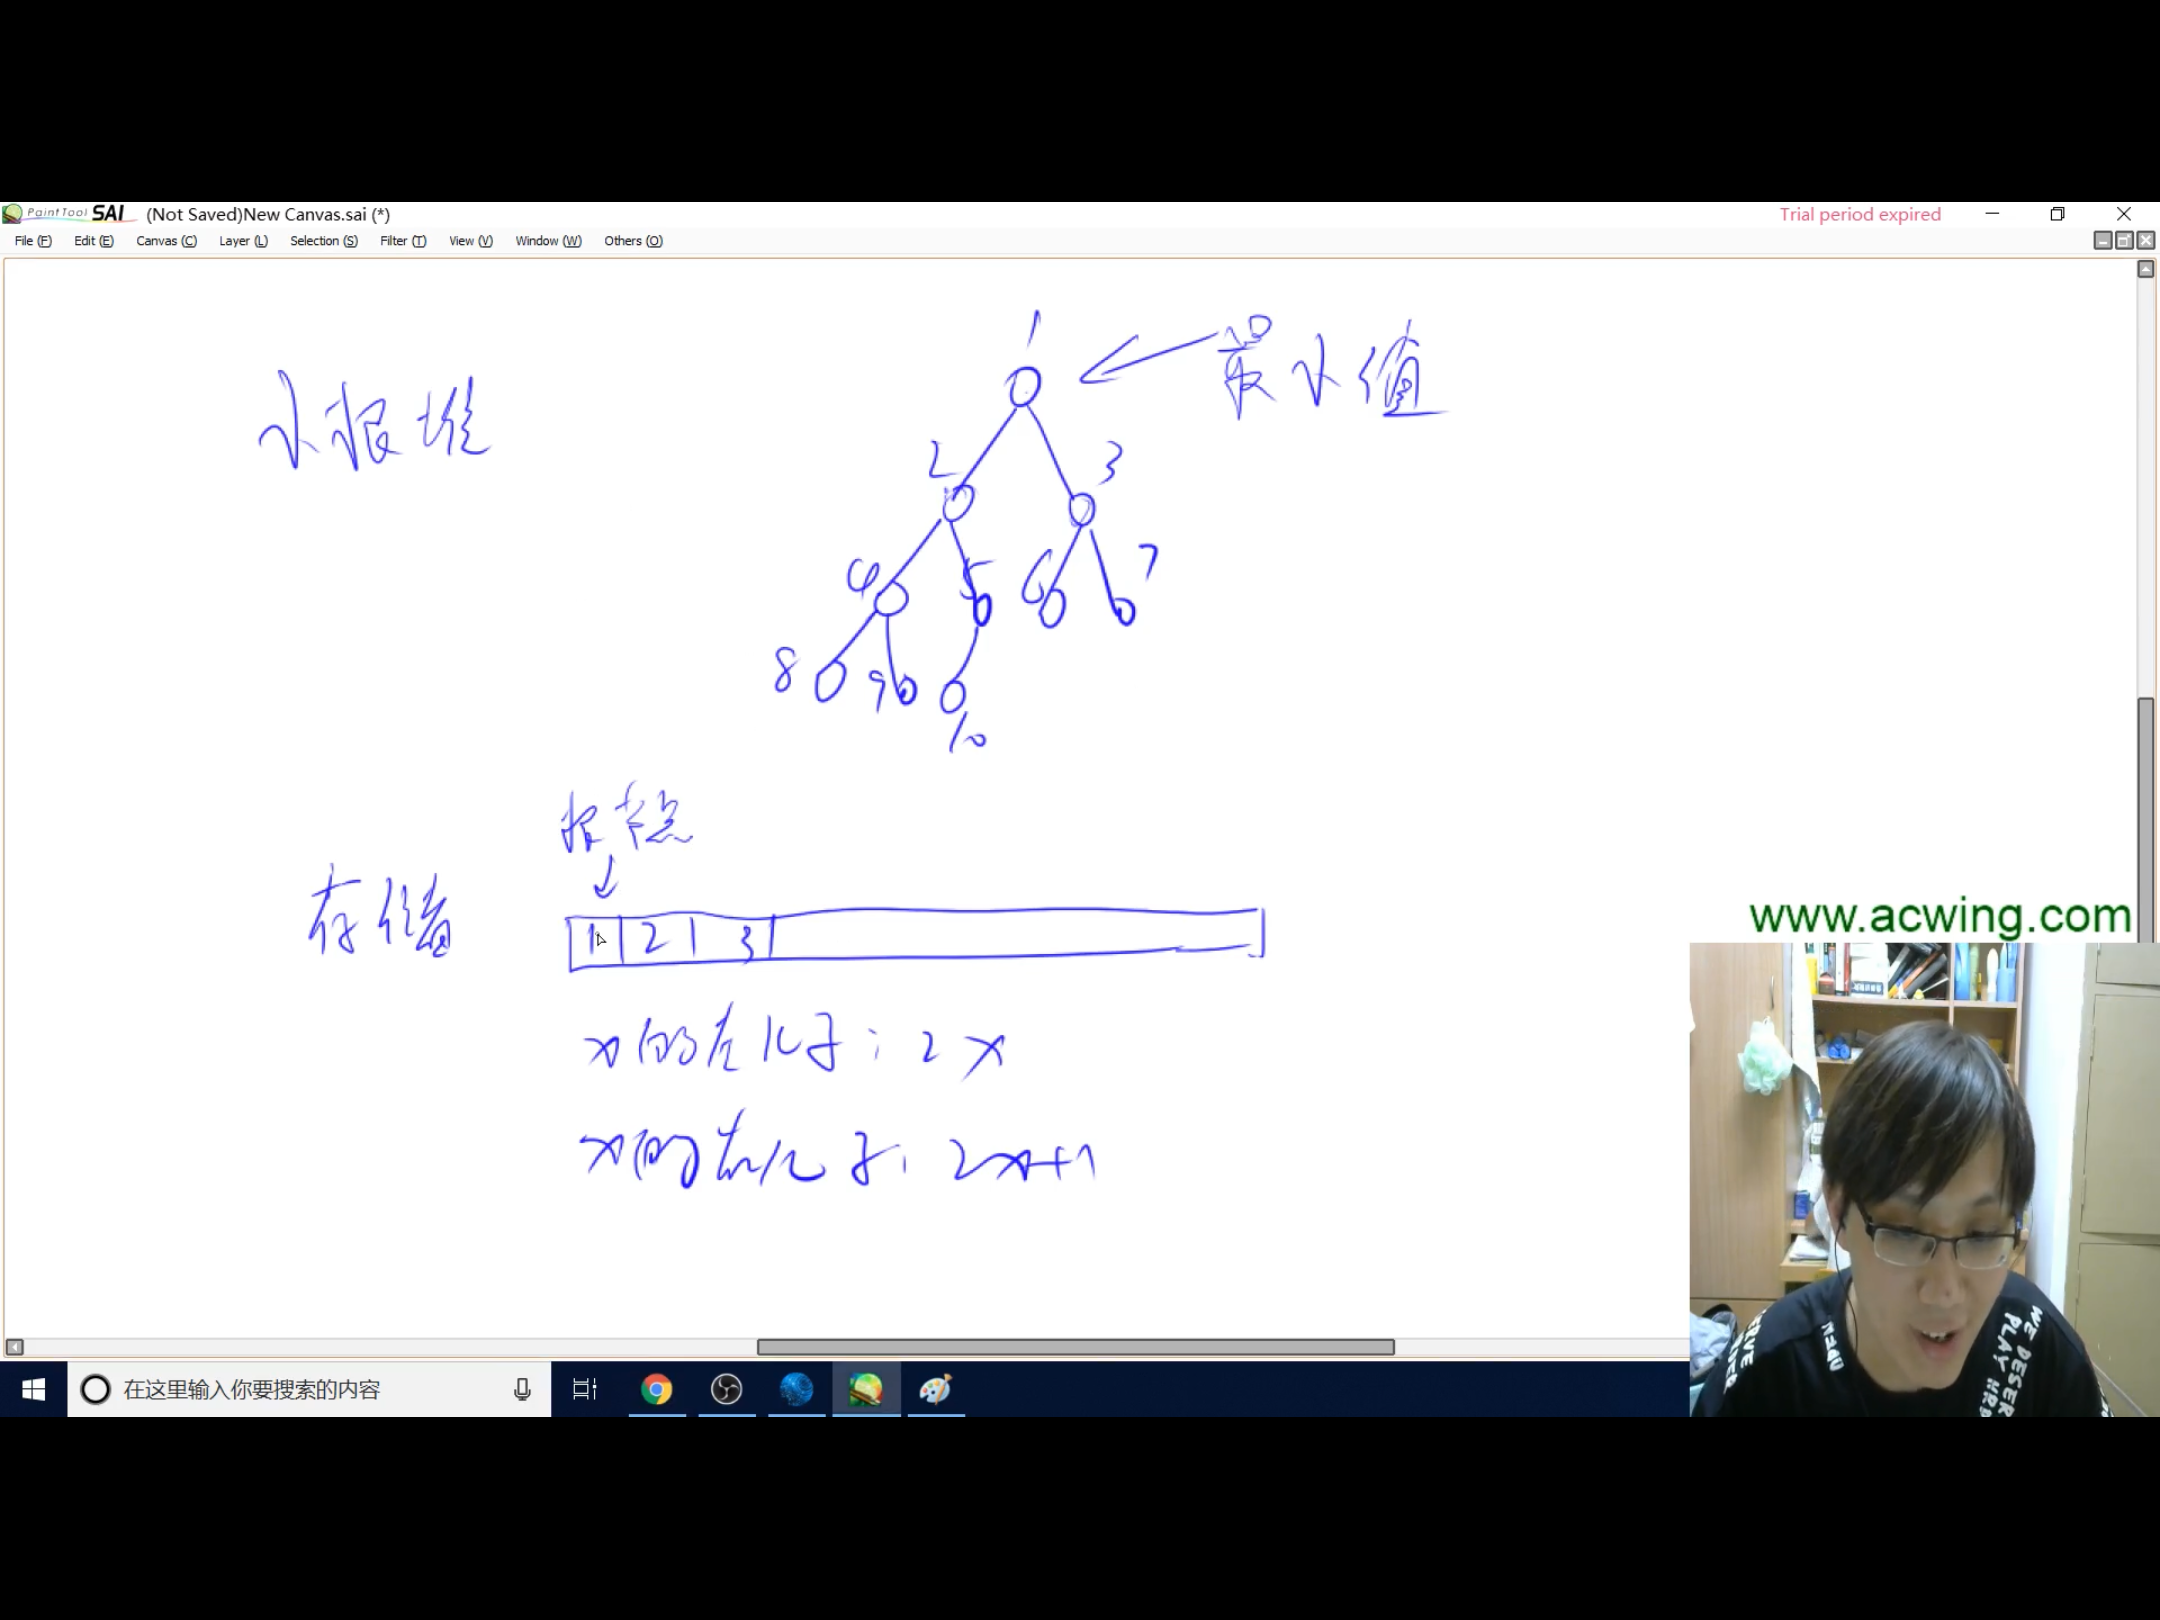 PaintTool SAI (Not Saved)New Canvas.sai (*) Trial period expired
File (F) Edit (E) Canvas (C) Layer (L) Selection (S) Filter (T) View (V) Window (W) Others (O)
小根堆
最小值
1
2 3
4 5 6 7
8 9 10
根节点
存储
1 2 3
x的左儿子: 2x
x的右儿子: 2x+1
www.acwing.com
WE DESER
PLAY HAR
在这里输入你要搜索的内容